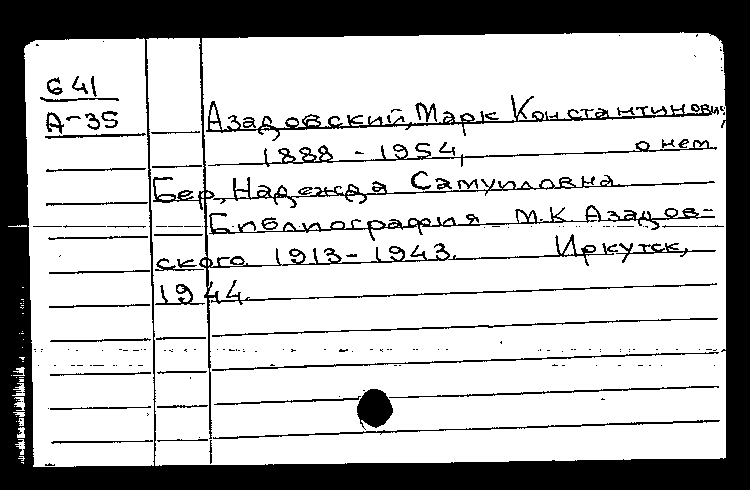 G 41
А-35
Азадовский, Марк Константинович,
1888 - 1954, о нем.
Бер, Надежда Самуиловна
Библиография М.К Азадов-
ского 1913-1943. Иркутск,
1944.